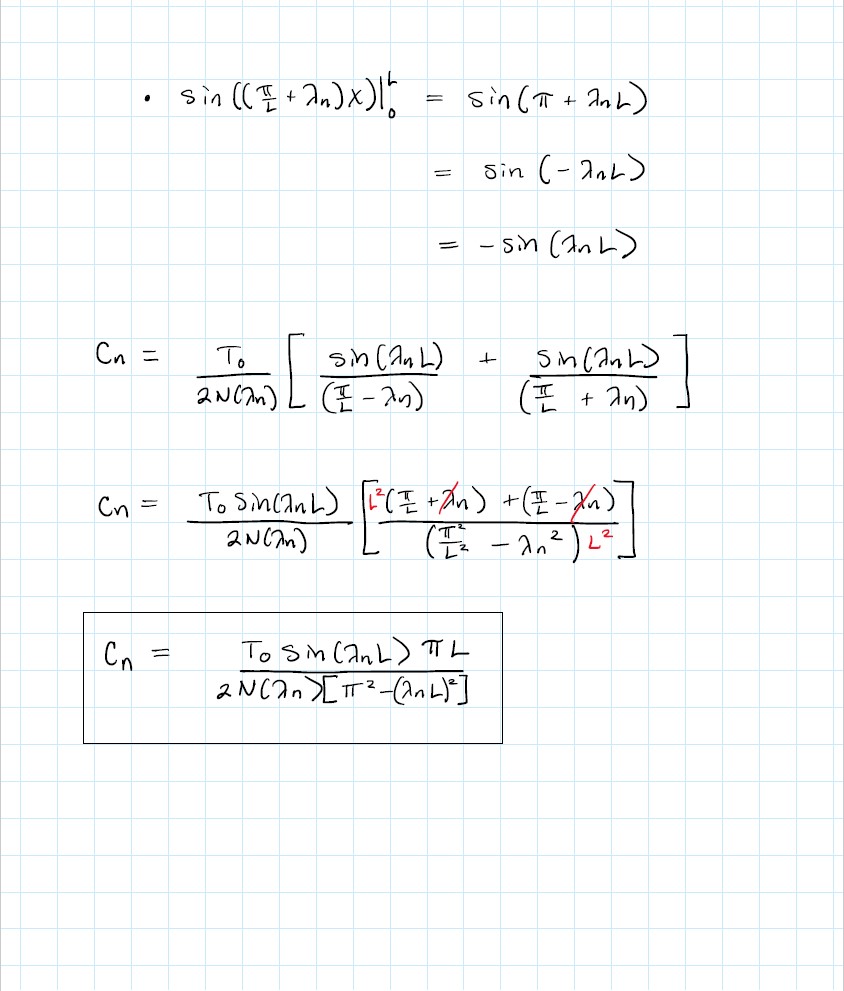 • sin((π/L + λn)x)|₀ᴸ = sin(π + λnL)
= sin(-λnL)
= -sin(λnL)
Cn = T₀/2N(λn) [ sin(λnL)/(π/L - λn) + sin(λnL)/(π/L + λn) ]
Cn = T₀ sin(λnL)/2N(λn) [ L²(π/L + λn) + (π/L - λn) / (π²/L² - λn²) L² ]
Cn = T₀ sin(λnL) πL / 2N(λn)[π² - (λnL)²]